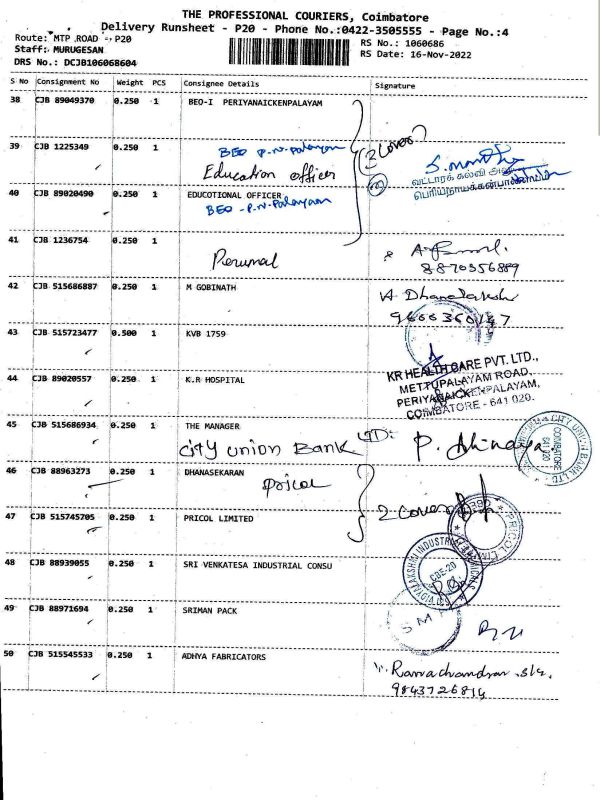 THE PROFESSIONAL COURIERS, Coimbatore
Delivery Runsheet - P20 - Phone No.:0422-3505555 - Page No.:4
Route: MTP ROAD - P20
RS No.: 1060686
Staff: MURUGESAN
RS Date: 16-Nov-2022
DRS No.: DCJB106068604
S No Consignment No Weight PCS Consignee Details Signature
38 CJB 89049370 0.250 1 BEO-I PERIYANAICKENPALAYAM
39 CJB 1225349 0.250 1 BEO P.N. Palayam
Education officer
2 Cover
வட்டாரக் கல்வி
40 CJB 89020490 0.250 1 EDUCOTIONAL OFFICER
BEO - P.N. Palayam
41 CJB 1236754 0.250 1
Perumal
8870356889
42 CJB 515686887 0.250 1 M GOBINATH
43 CJB 515723477 0.500 1 KVB 1759
KR HEALTH CARE PVT. LTD.,
METTUPALAYAM ROAD,
PERIYANAICKENPALAYAM,
COIMBATORE - 641 020.
44 CJB 89020557 0.250 1 K.R HOSPITAL
45 CJB 515686934 0.250 1 THE MANAGER
City Union Bank LTD:
P. Abinaya
46 CJB 88963273 0.250 1 DHANASEKARAN
Pricol
2 Cover
47 CJB 515745705 0.250 1 PRICOL LIMITED
48 CJB 88939055 0.250 1 SRI VENKATESA INDUSTRIAL CONSU
CBE-20
49 CJB 88971694 0.250 1 SRIMAN PACK
50 CJB 515545533 0.250 1 ADHYA FABRICATORS
Ramachandran
9843726814